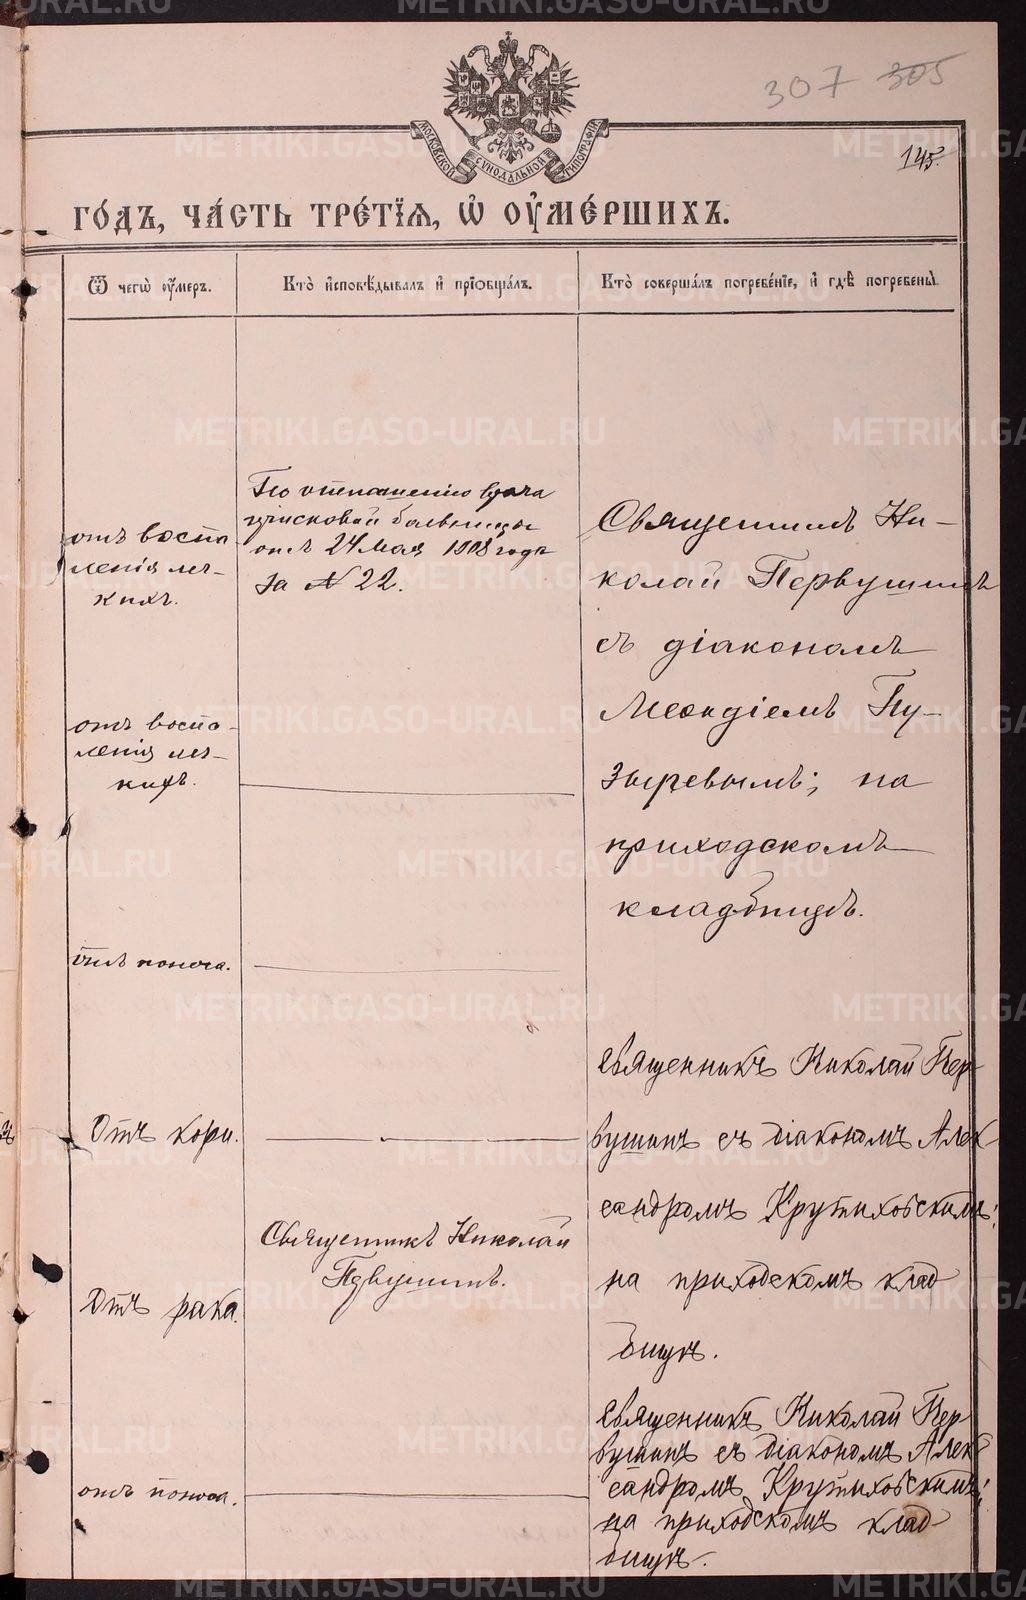 307 305
МОСКОВСКОЙ СУНОДАЛЬНОЙ ТИПОГРАФІИ
145.
ГО́ДЪ, ЧА́СТЬ ТРЕ́ТЇѦ, Ѡ҆ ОУ҆МЕ́РШИХЪ.
Ѿ чегѡ̀ оу҆́меръ.
Кто̀ и҆сповѣ́дывалъ и҆ прїѡбща́лъ.
Кто̀ соверша́лъ погребе́нїе, и҆ гдѣ̀ погребены̀.
отъ воспа
ленія лег-
кихъ.
По отношенію врача
пріисковой больницы
отъ 24 мая 1908 года
за № 22.
Священникъ Ни-
колай Первушинъ
съ діакономъ
Меѳодіемъ Пу-
зыревымъ; на
приходскомъ
кладбищѣ.
отъ воспа-
ленія лег-
кихъ.
отъ поноса.
Отъ кори.
Священникъ Николай Пер
вушинъ съ діакономъ Алек
сандромъ Крутиховскимъ;
на приходскомъ клад
бищѣ.
Отъ рака.
Священникъ Николай
Первушинъ.
отъ поноса.
Священникъ Николай Пер
вушинъ съ діакономъ Алек
сандромъ Крутиховскимъ;
на приходскомъ клад
бищѣ.
METRIKI.GASO-URAL.RU